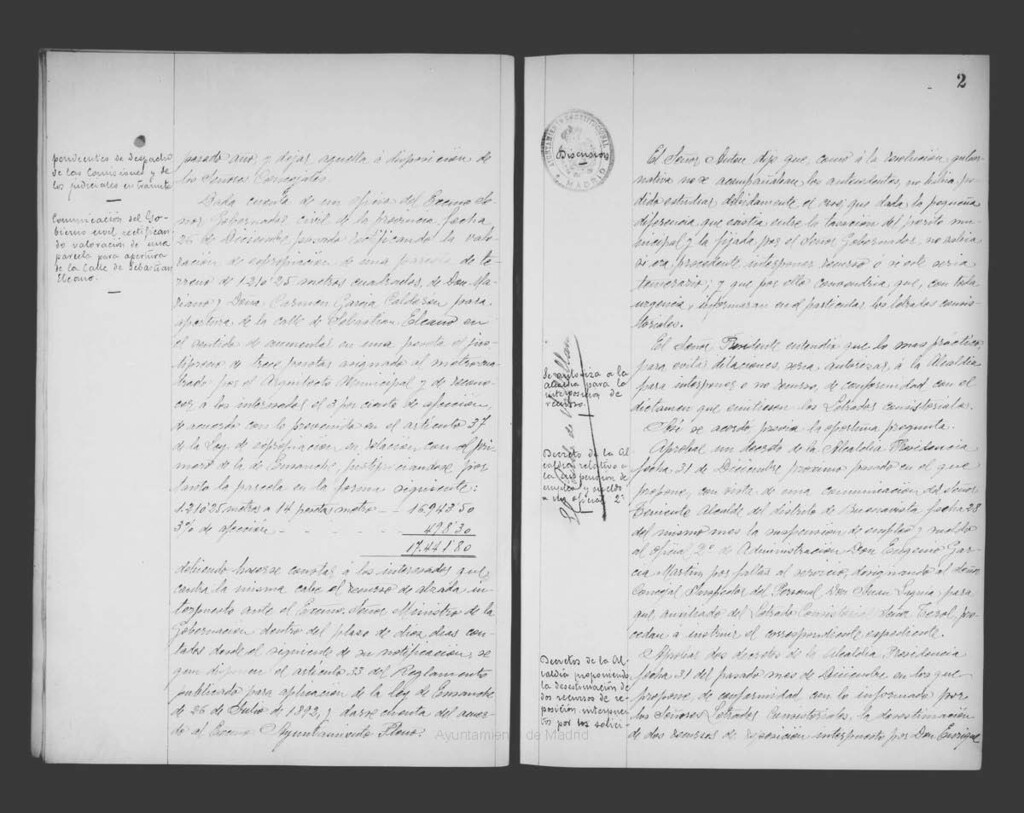 pendientes de despacho
de las Comisiones y de
los judiciales en trámite
Comunicación del Go-
bierno civil rectifican-
do valoración de una
parcela para apertura
de la Calle de Sebastián
Elcano.
pasado año, y dejar aquella á disposición de
los Señores Concejales.
Dada cuenta de un oficio del Excmo Se-
ñor Gobernador civil de la provincia fecha
26 de Diciembre pasado rectificando la valo-
ración de expropiación de una parcela de te-
rreno de 1.210'25 metros cuadrados, de Don Ma-
riano y Doña Carmen García Calderón para
apertura de la calle de Sebastian Elcano en
el sentido de aumentar en una peseta el jus-
tiprecio de trece pesetas asignado al metro cua-
drado por el Arquitecto Municipal y de recono-
cer á los interesados el 3 por ciento de afección,
de acuerdo con lo prevenido en el artículo 37
de la Ley de expropiación en relación con el pri-
mero de la de Ensanche, justipreciándose por
tanto la parcela en la forma siguiente:
1.210'25 metros á 14 pesetas metro - - 16.943'50
3% de afección - - - - 498'30
17.441'80
debiendo hacerse constar á los interesados que
contra la misma cabe el recurso de alzada in-
terpuesto ante el Excmo. Señor Ministro de la
Gobernación dentro del plazo de diez dias con-
tados desde el siguiente de su notificación, se
gun dispone el artículo 33 del Reglamento
publicado para aplicación de la Ley de Ensanche
de 26 de Julio de 1892, y darse cuenta del acuer-
do al Excmo. Ayuntamiento Pleno.
2
AYUNTAMIENTO CONSTITUCIONAL
MADRID
Discusión
El Señor dijo que, como á la resolución guber-
nativa no se acompañaban los antecedentes, no había po-
dido estudiar debidamente el caso que dada la pequeña
diferencia que existía entre la tasación del perito mu-
nicipal y la fijada por el Señor Gobernador, no sabía
si era procedente interponer recurso ó si éste sería
temerario; y que por ello convendría que, con toda
urgencia, informaran en el particular los letrados consis-
toriales.
El Señor Presidente entendía que lo mas práctico,
para evitar dilaciones, sería autorizar á la Alcaldía
para interponer ó no recurso, de conformidad con el
dictamen que emitiesen los Letrados consistoriales.
Así se acordó previa la oportuna pregunta.
Se autoriza a la
alcaldía para la
interposición de
recurso.
Aprobar un decreto de la Alcaldía Presidencia
fecha 31 de Diciembre próximo pasado en el que
propone, con vista de una comunicación del Señor
Teniente Alcalde del distrito de Buenavista fecha 28
del mismo mes la suspensión de empleo y sueldo
al Oficial 2º de Administración Don Eugenio Gar-
cia Martin por faltas al servicio, designando al Señor
Concejal Inspector del Personal Don Juan para
que auxiliado del Letrado Consistorial Señor pro-
cedan á instruir el correspondiente expediente.
Decreto de la Al-
caldía relativo a
la suspensión de
empleo y sueldo
a un oficial 2º
Aprobar dos decretos de la Alcaldía Presidencia
fecha 31 del pasado mes de Diciembre en los que
propone, de conformidad con lo informado por
los Señores Letrados Consistoriales, la desestimación
de dos recursos de reposición interpuestos por Don Enrique
Decretos de la Al-
caldía proponiendo
la desestimación de
dos recursos de re-
posición interpues-
tos por los solici-
Ayuntamiento de Madrid